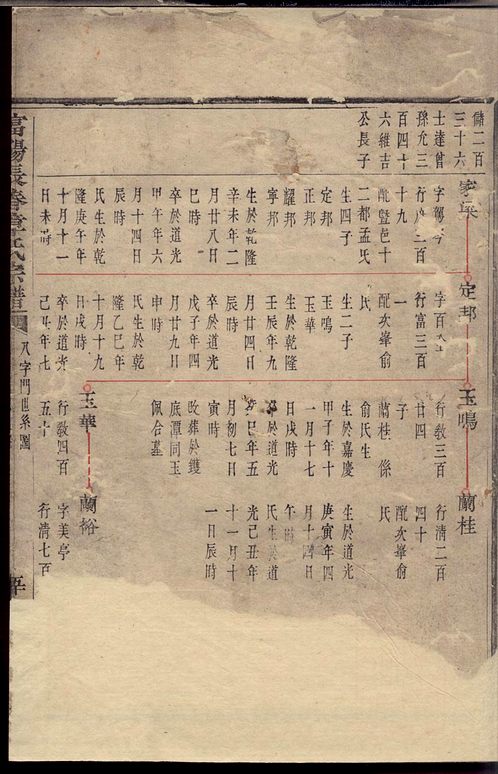 儲二百
三十六
士達曾
孫允三
百四十
六維吉
公長子
家
行 二百
十九
配豎邑十
二都孟氏
生四子
定邦
正邦
耀邦
寧邦
生於乾隆
辛未年二
月廿八日
巳時
卒於道光
甲午年六
月十四日
辰時
氏生於乾
隆庚午年
十月十一
日未時
定邦
字百
行富三百
一
配次峯俞
氏
生二子
玉鳴
玉華
生於乾隆
壬辰年九
月廿四日
辰時
卒於道光
戊子年四
月廿九日
申時
氏生於乾
隆乙巳年
十月十九
日戌時
卒於道光
己 年七
玉鳴
行敎三百
廿四
子
蘭桂 係
俞氏生
生於嘉慶
甲子年十
一月十七
日戌時
卒於道光
癸巳年五
月初七日
寅時
改葬於鑊
底潭同玉
佩合墓
玉華
行敎四百
五十
蘭桂
行清二百
四十
配次峯俞
氏
生於道光
庚寅年四
月十四日
午時
氏生於道
光己丑年
十一月十
一日辰時
蘭裕
字美亭
行清七百
富陽長春章氏宗譜
八字門世系圖